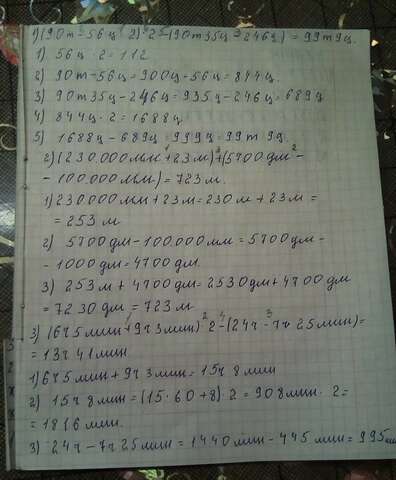 1) (90т-56ц · 2) · 2 - (90т 35ц - 246ц) = 99т 9ц.
1). 56ц · 2 = 112
2) 90т-56ц = 900ц-56ц = 844ц.
3) 90т 35ц - 246ц = 935ц - 246ц = 689ц
4) 844ц · 2 = 1688ц
5) 1688ц - 689ц = 999ц = 99т 9ц.
2) (230.000мм + 23м) + (5700дм -
- 100.000мм) = 723м.
1) 230.000мм + 23м = 230м + 23м =
= 253м
2) 5700дм - 100.000мм = 5700дм -
- 1000дм = 4700дм.
3) 253м + 4700дм = 2530дм + 4700дм
= 7230дм = 723м
3) (6ч 5мин + 9ч 3мин) · 2 - (24ч - 7ч 25мин) =
= 13ч 41мин
1) 6ч 5мин + 9ч 3мин = 15ч 8мин
2) 15ч 8мин = (15 · 60 + 8) · 2 = 908мин · 2 =
= 1816мин.
3) 24ч - 7ч 25мин = 1440мин - 445мин = 995мин